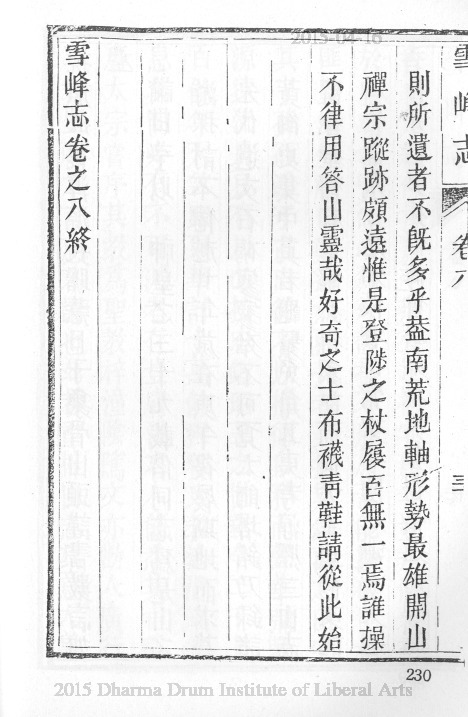 2015-04-16
雪峰志
卷八
三
則所遺者不旣多乎葢南荒地軸形勢最雄開山
禪宗蹤跡頗遠惟是登陟之杖履百無一焉誰操
不律用答山靈哉好奇之士布襪靑鞋請從此始
雪峰志卷之八終
230
2015 Dharma Drum Institute of Liberal Arts